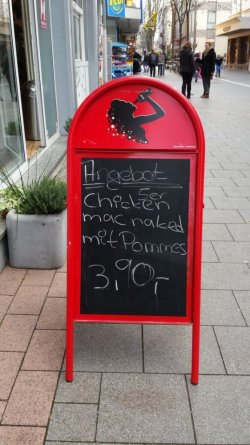 Angebot
6er
Chicken
mac naked
mit Pommes
3,90,-